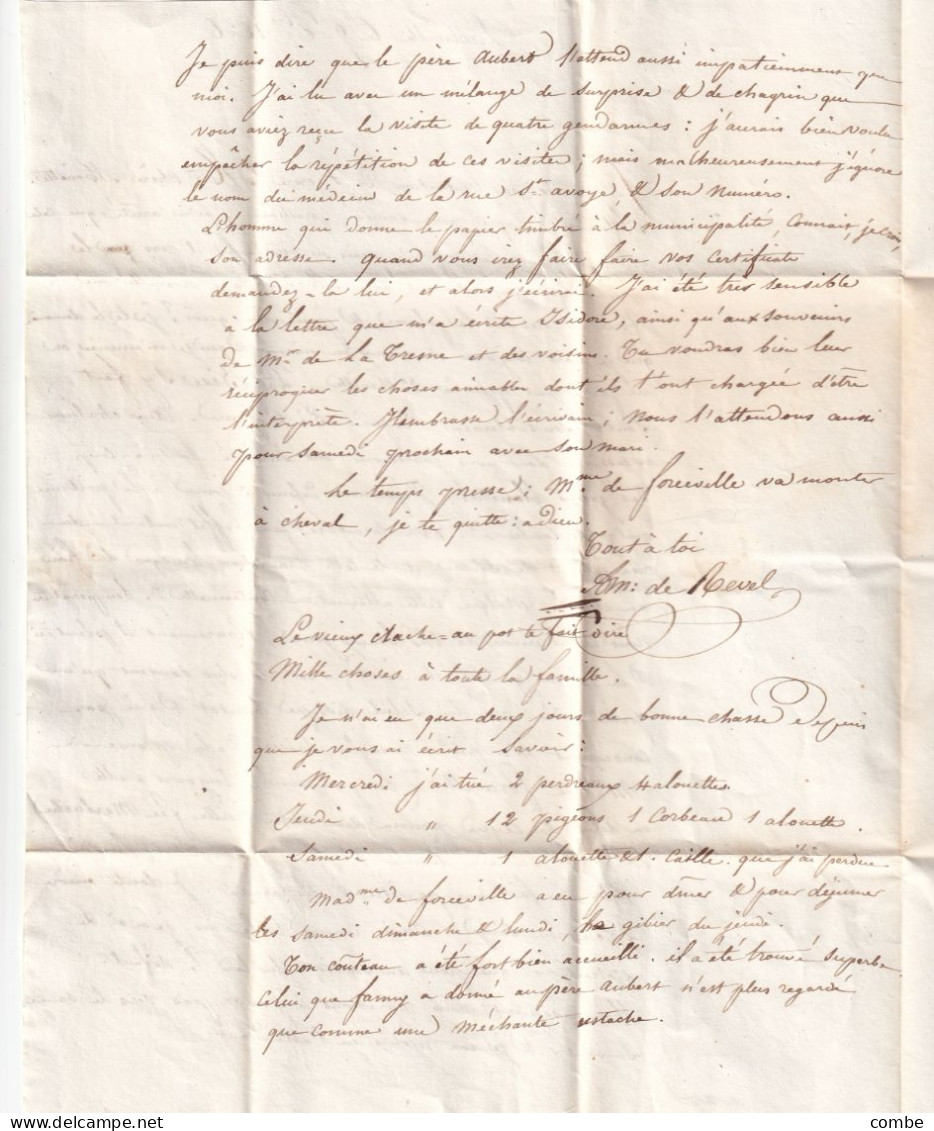 Je puis dire que le père Aubert t'attend aussi impatiemment que
moi. J'ai lu avec un mélange de surprise & de chagrin que
vous aviez reçu la visite de quatre gendarmes : j'aurais bien voulu
empêcher la répétition de ces visites ; mais malheureusement j'ignore
le nom du médecin de la rue St. avoye & son numéro.
L'homme qui donne le papier timbré à la municipalité, connait, je crois,
son adresse. quand vous irez faire faire vos certificats
demandez-la lui, et alors j'écrirai. J'ai été très sensible
à la lettre que m'a écrite Isidore, ainsi qu'aux souvenirs
de Mr. de La Tresne et des voisins. Tu voudras bien leur
réciproquer les choses aimables dont ils t'ont chargée d'être
l'interprète. J'embrasse l'écrivain ; nous l'attendons aussi
pour samedi prochain avec son mari.
Le temps presse ; Mme. de forceville va monter
à cheval, je te quitte : adieu.
Tout à toi
Am: de Revel
Le vieux au pot te fait dire
Mille choses à toute la famille.
Je n'ai eu que deux jours de bonne chasse depuis
que je vous ai écrit savoir :
Mercredi j'ai tué 2 perdreaux 4 alouettes.
Jeudi " 12 pigeons 1 corbeau 1 alouette.
Samedi " 1 alouette & 1. caille. que j'ai perdue
Madme. de forceville a eu pour dîner & pour déjeuner
les samedi dimanche & lundi, le gibier du jeudi.
Ton couteau a été fort bien accueilli. il a été trouvé superbe
Celui que fanny a donné au père Aubert n'est plus regardé
que comme une méchante ustache.
combe